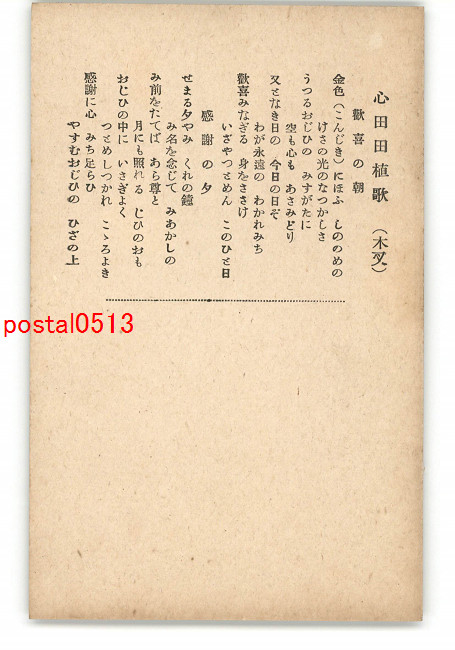 心田田植歌 (木叉)
歓喜の朝
金色(こんじき)にほふ しのゝめの
けさの光のなつかしさ
うつるおじひの みすがたに
空も心も あさみどり
又となき日の 今日の日ぞ
わが永遠の わかれみち
歓喜みなぎる 身をさゝげ
いざやつとめん このひと日
感謝の夕
せまる夕やみ くれの鐘
み名を念じて みあかしの
み前をたてば あら尊と
月にも照れる じひのおも
おじひの中に いさぎよく
つとめしつかれ こゝろよき
感謝に心 みち足らひ
やすむおじひの ひざの上
postal0513